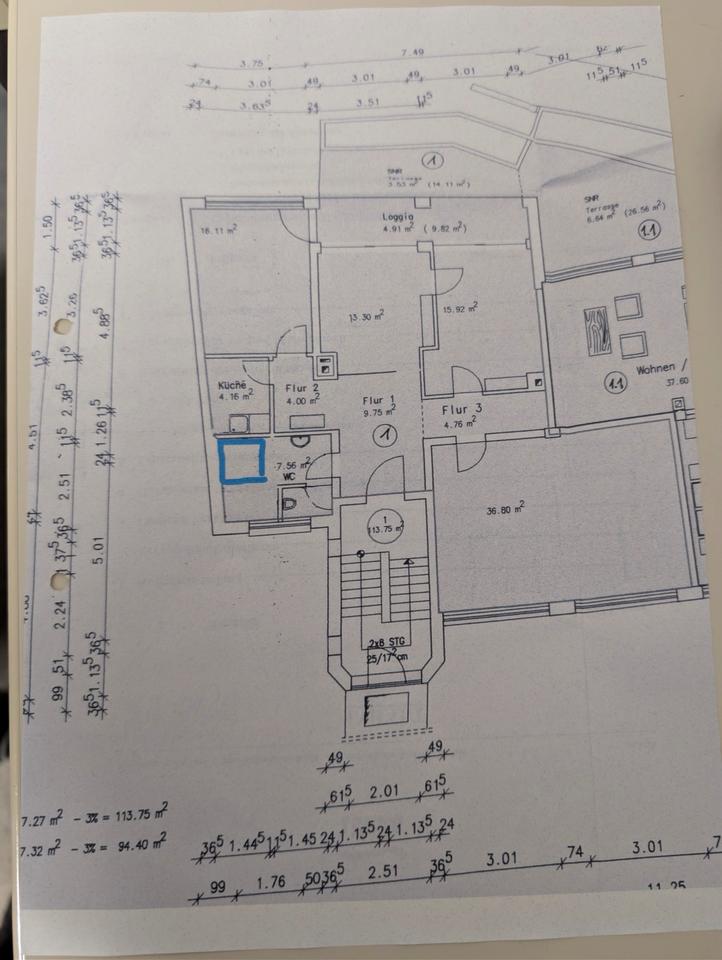 3.75
7.49
74
3.01
49
3.01
49
3.01
49
3.01
62
11⁵ 51 11⁵
24
3.63⁵
24
3.51
11⁵
SNR
Terrasse
3.53 m² (14.11 m²)
1
SNR
Terrasse
6.64 m² (26.56 m²)
1.1
Loggia
4.91 m² ( 9.82 m²)
16.11 m²
13.30 m²
15.92 m²
Küche
4.16 m²
Flur 2
4.00 m²
Flur 1
9.75 m²
1
Flur 3
4.76 m²
Wohnen /
37.60
1.1
7.56 m²
WC
36.80 m²
1
113.75 m²
2x8 STG
25/17² cm
1.50
3.62⁵
11⁵
4.51
36⁵ 1.13⁵ 36⁵
3.26
11⁵
2.38⁵
11⁵
2.51
1.37⁵ 36⁵
2.24
51
99
36⁵ 1.13⁵ 36⁵
4.88⁵
24 1.26 11⁵
5.01
36⁵ 1.13⁵ 36⁵
49
49
61⁵ 2.01 61⁵
36⁵ 1.44⁵ 11⁵ 1.45 24 1.13⁵ 24 1.13⁵ 24
99 1.76 50 36⁵ 2.51 36⁵ 3.01 74 3.01
11.25
7.27 m² - 3% = 113.75 m²
7.32 m² - 3% = 94.40 m²